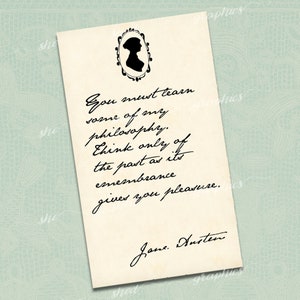 You must learn
some of my
philosophy.
Think only of
the past as its
remembrance
gives you pleasure.
Jane Austen